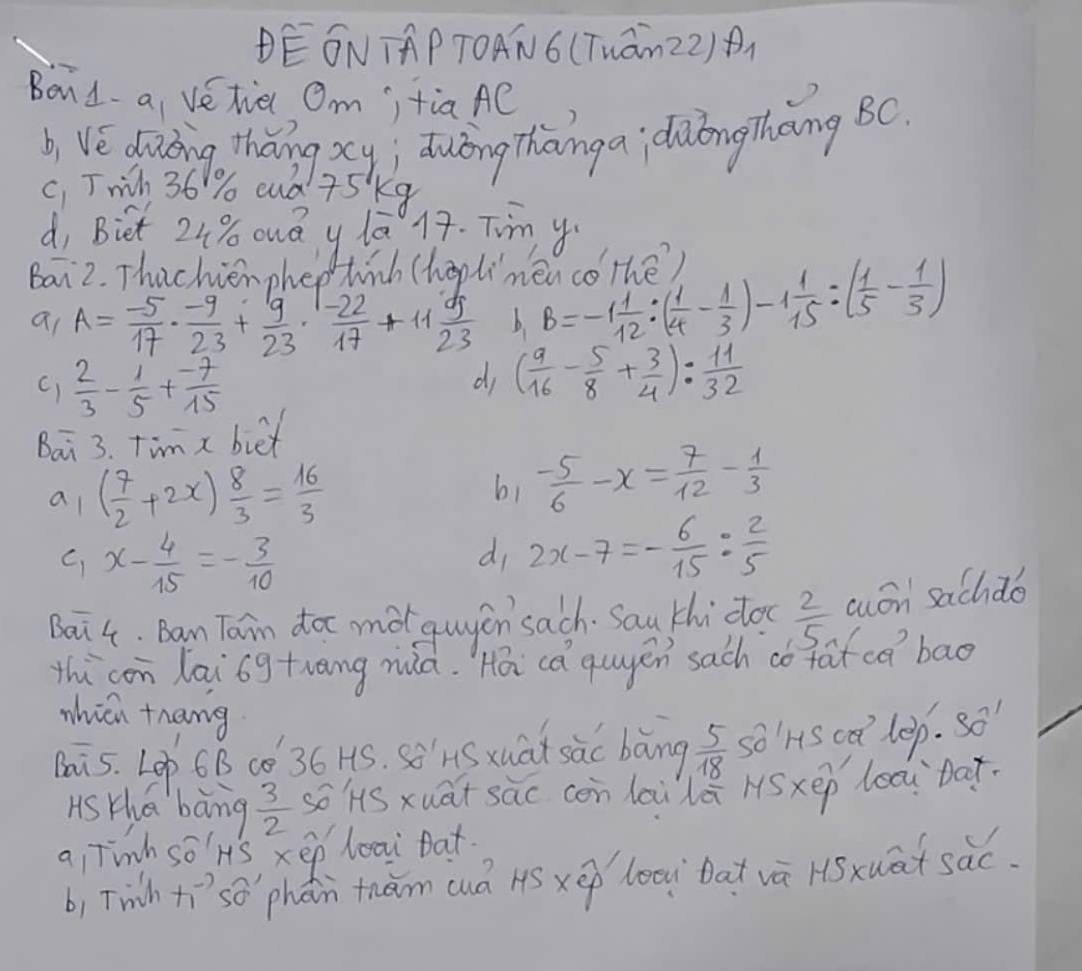 ĐỀ ÔN TẬP TOÁN 6 (Tuần 22) Đ1
Bài 1- a, Vẽ tia Om ; tia AC
b, Vẽ đường thẳng xy ; đường thẳng a ; đường thẳng BC.
c, Tính 36% của 75 kg
d, Biết 24% của y là 17. Tìm y.
Bài 2. Thực hiện phép tính (hợp lí nếu có thể)
a, A = -5/17 . -9/23 + 9/23 . -22/17 + 11 b, B = -1 1/12 : (1/4 - 1/3) - 1 1/15 : (1/5 - 1/3)
c, 2/3 - 1/5 + -7/15 d, (9/16 - 5/8 + 3/4) : 11/32
Bài 3. Tìm x biết
a, (7/2 + 2x) 8/3 = 16/3 b, -5/6 - x = 7/12 - 1/3
c, x - 4/15 = - 3/10 d, 2x - 7 = - 6/15 : 2/5
Bài 4. Bạn Tâm đọc một quyển sách. Sau khi đọc 2/5 cuốn sách đó
thì còn lại 69 trang nữa. Hỏi cả quyển sách có tất cả bao
nhiêu trang.
Bài 5. Lớp 6B có 36 HS. Số HS xuất sắc bằng 5/18 số HS cả lớp. Số
HS khá bằng 3/2 số HS xuất sắc còn lại là HS xếp loại Đạt.
a, Tính số HS xếp loại Đạt.
b, Tính tỉ số phần trăm của HS xếp loại Đạt và HS xuất sắc.